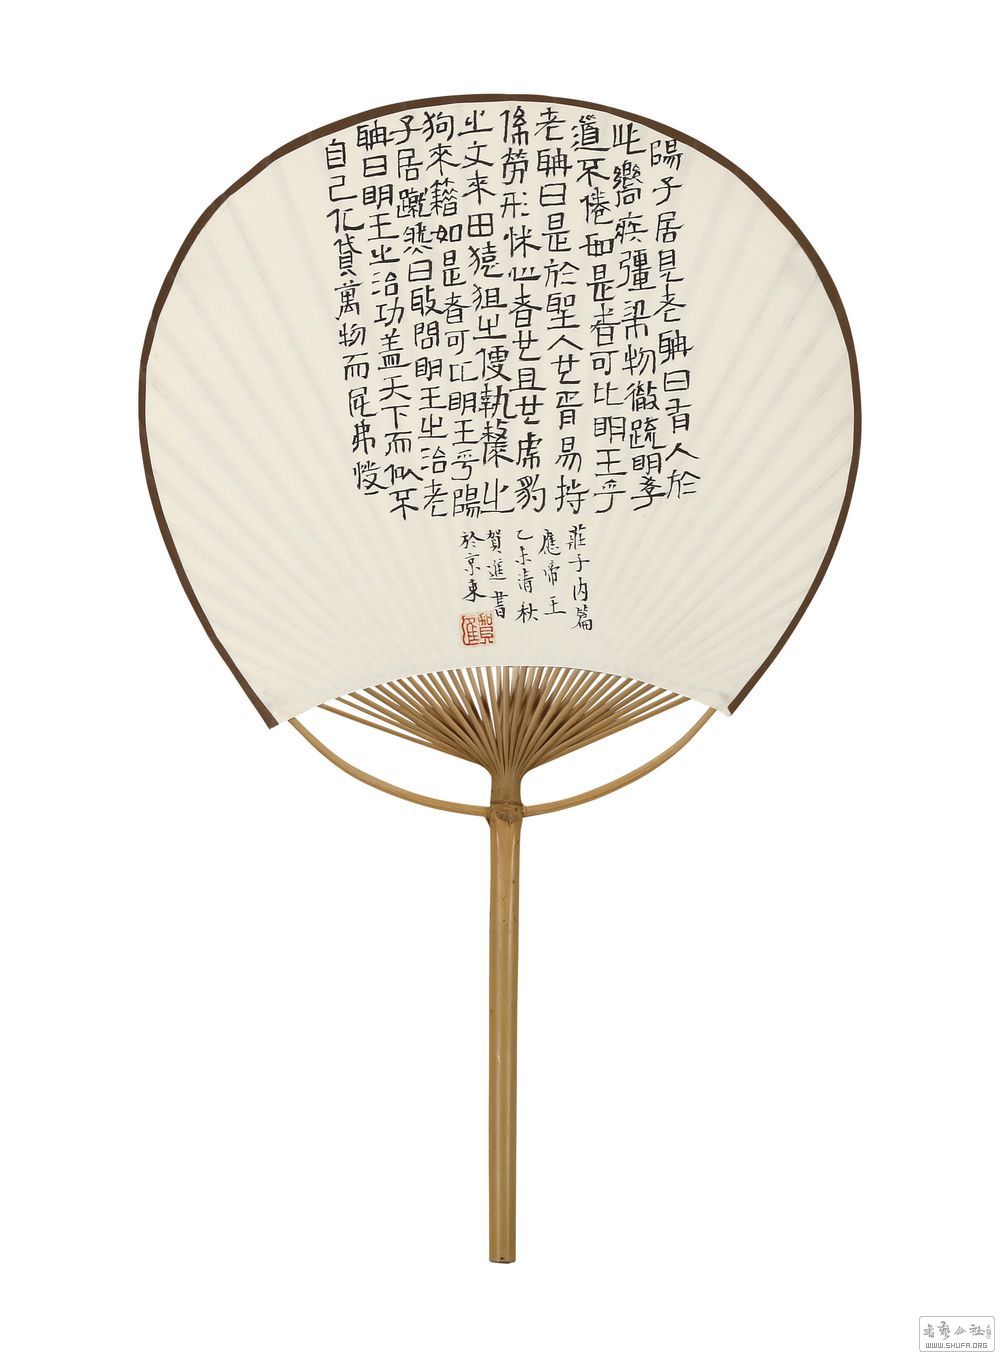 陽子居見老聃曰有人於
此嚮疾彊梁物徹疏明斈
道不倦如是者可比明王乎
老聃曰是於聖人也胥易技
係勞形怵心者也且也虎豹
之文來田猿狙之便執斄之
狗來籍如是者可比明王乎陽
子居蹴然曰敢問明王之治老
聃曰明王之治功蓋天下而似不
自己化貸萬物而民弗恃
莊子內篇
應帝王
乙未清秋
賀進書
於京東
賀進
WWW.SHUFA.ORG